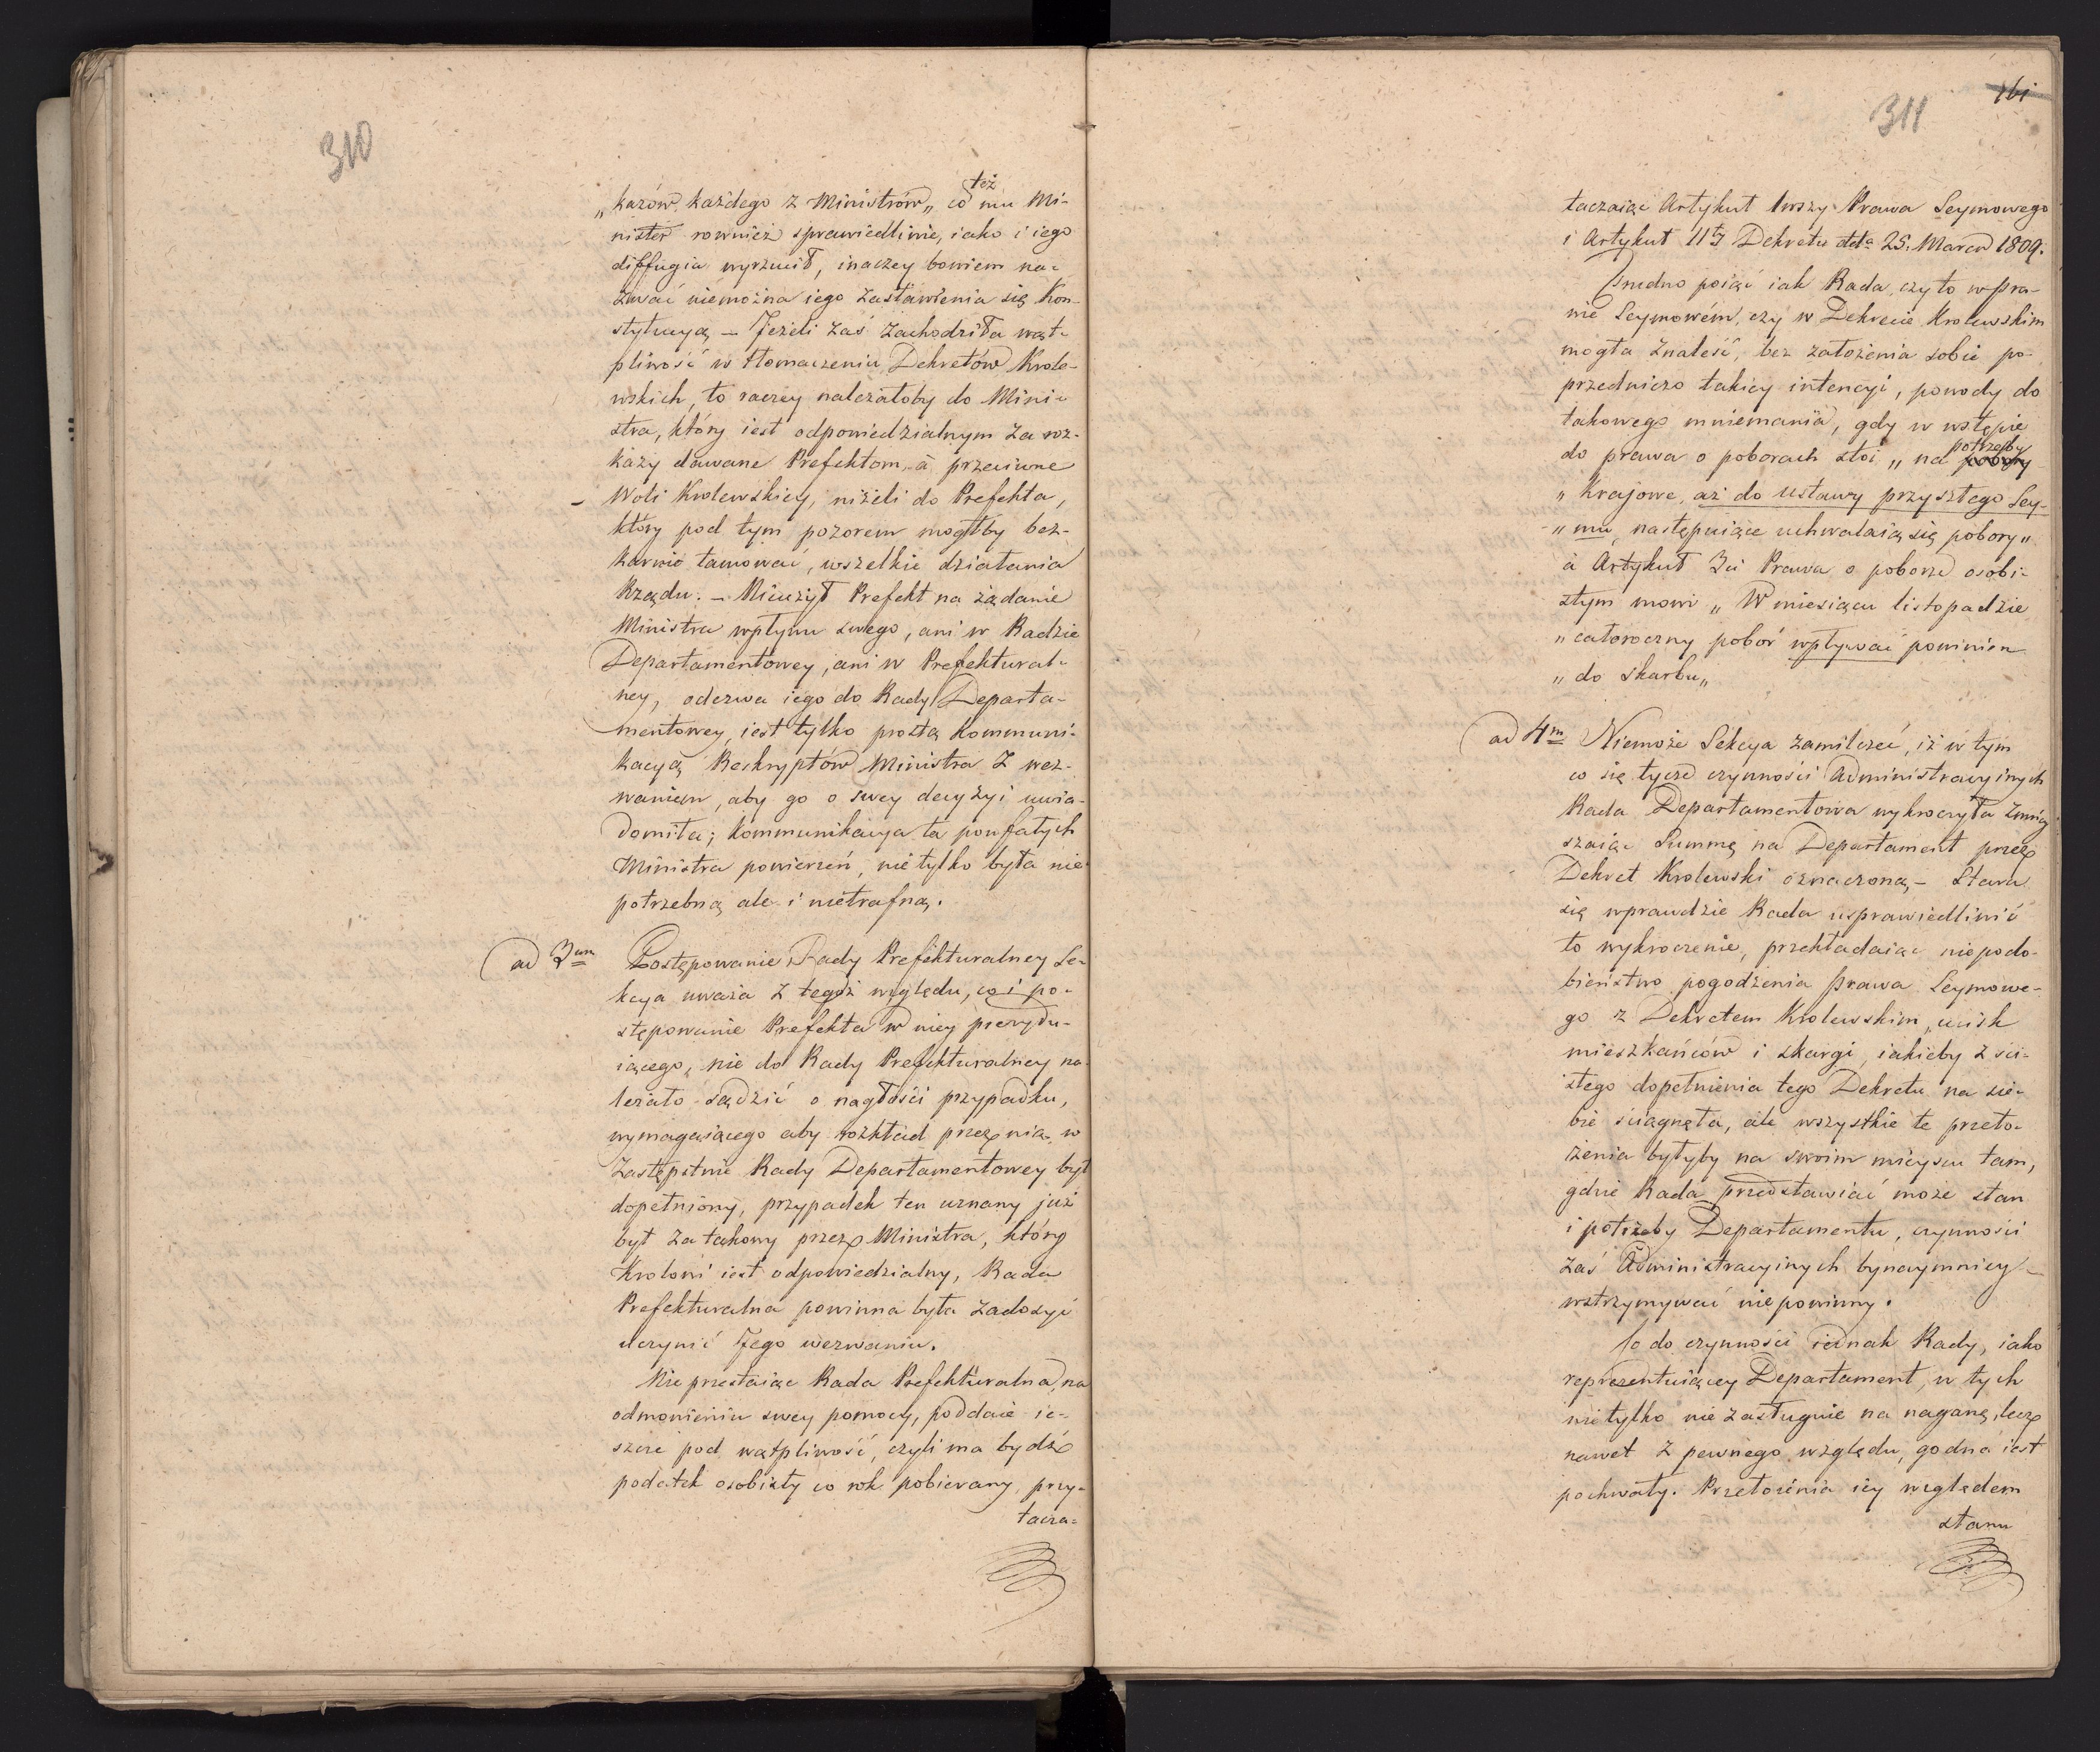 310
„kazów, każdego z Ministrów„ co też mu Mi-
nister rownież sprawiedliwie, iako i iego
diffugia wyrzucił, inaczey bowiem na-
zwać niemożna iego zastawienia się Kon-
stytucyą – Jeżeli zaś zachodziła wąt-
pliwość w tłomaczeniu Dekretów Krole-
wskich, to raczey należałoby do Mini-
stra, który iest odpowiedzialnym za roz-
kazy dawane Prefektom, a przeciwne
– Woli Krolewskiey, niżeli do Prefekta,
który pod tym pozorem mogłby bez-
karnie tamować, wszelkie działania
Rządu. – Nieużył Prefekt na żądanie
Ministra wpływu swego, ani w Radzie
Departamentowey, ani w Prefektural-
ney, odezwa iego do Rady Departa-
mentowey, iest tylko prostą kommuni-
kacyą Reskryptów Ministra z wez-
waniem, aby go o swey decyzyi uwia-
domiła; kommunikacya ta poufałych
Ministra powierzeń, nie tylko była nie
potrzebną ale i nietrafną.
ad 3um Postępowanie Rady Prefekturalney Se-
kcya uważa z tegoż względu, co i po-
stępowanie Prefekta w niey prezydu-
iącego, nie do Rady Prefekturalney na-
leżało sądzić o nagłości przypadku,
wymagaiącego aby rozkład przez nią, w
Zastępstwie Rady Departamentowey był
dopełniony, przypadek ten uznany już
był za takowy przez Ministra, który
Krolowi iest odpowiedzialny, Rada
Prefekturalna powinna była zadosyć
uczynić Jego wezwaniu.
Nie przestaiąc Rada Prefekturalna, na
odmowieniu swey pomocy, poddaie ie-
szcze pod wątpliwość, czyli ma bydź
podatek osobisty co rok pobierany, przy-
tacza-
161
311
taczaiąc Artykuł 1wszy Prawa Seymowego
i Artykuł 11ty Dekretu dda 25. Marca 1809.
Trudno poiąć iak Rada, czy to w Pra-
wie Seymowém, czy w Dekrecie Krolewskim
mogła znaleść, bez założenia sobie po-
przedniczo takiey intencyi, powody do
takowego mniemania, gdy w wstępie
do prawa o poborach stoi „ na pobory potrzeby
„ Krajowe, aż do ustawy przyszłego Sey-
„ mu, następuiące uchwalaią się pobory„
a Artykuł 3ci Prawa o poborze osobi-
stym mowi „ W miesiącu listopadzie
„ całoroczny pobór wpływać powinien
„ do skarbu„
ad 4m Niemoże Sekcya zamilczeć, iż w tym
co się tycze czynności Administracyinych
Rada Departamentowa wykroczyła zmniey
szaiąc Summę na Departament przez
Dekret Krolewski oznaczoną, – Stara
się wprawdzie Rada usprawiedliwić
to wykroczenie, przekładaiąc niepodo-
bieństwo pogodzenia Prawa Seymowe-
go z Dekretem Krolewskim, ucisk
mieszkańców i skargi, iakieby z ści-
słego dopełnienia tego Dekretu na sie-
bie ściągnęła, ale wszystkie te przeło-
żenia byłyby na swoim mieyscu tam,
gdzie Rada przedstawiać może stan
i potrzeby Departamentu, czynności
zaś Administracyinych bynaymniey
wstrzymywać nie powinny.
Co do czynności iednak Rady, iako
reprezentuiącey Departament, w tych
nie tylko nie zasługuie na naganę, lecz
nawet z pewnego względu, godna iest
pochwały. Przełożenia iey względem
stanu